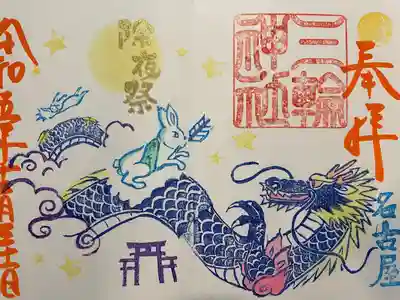 奉拝
名古屋
三輪
神社
除夜祭
令和五年十二月三十一日